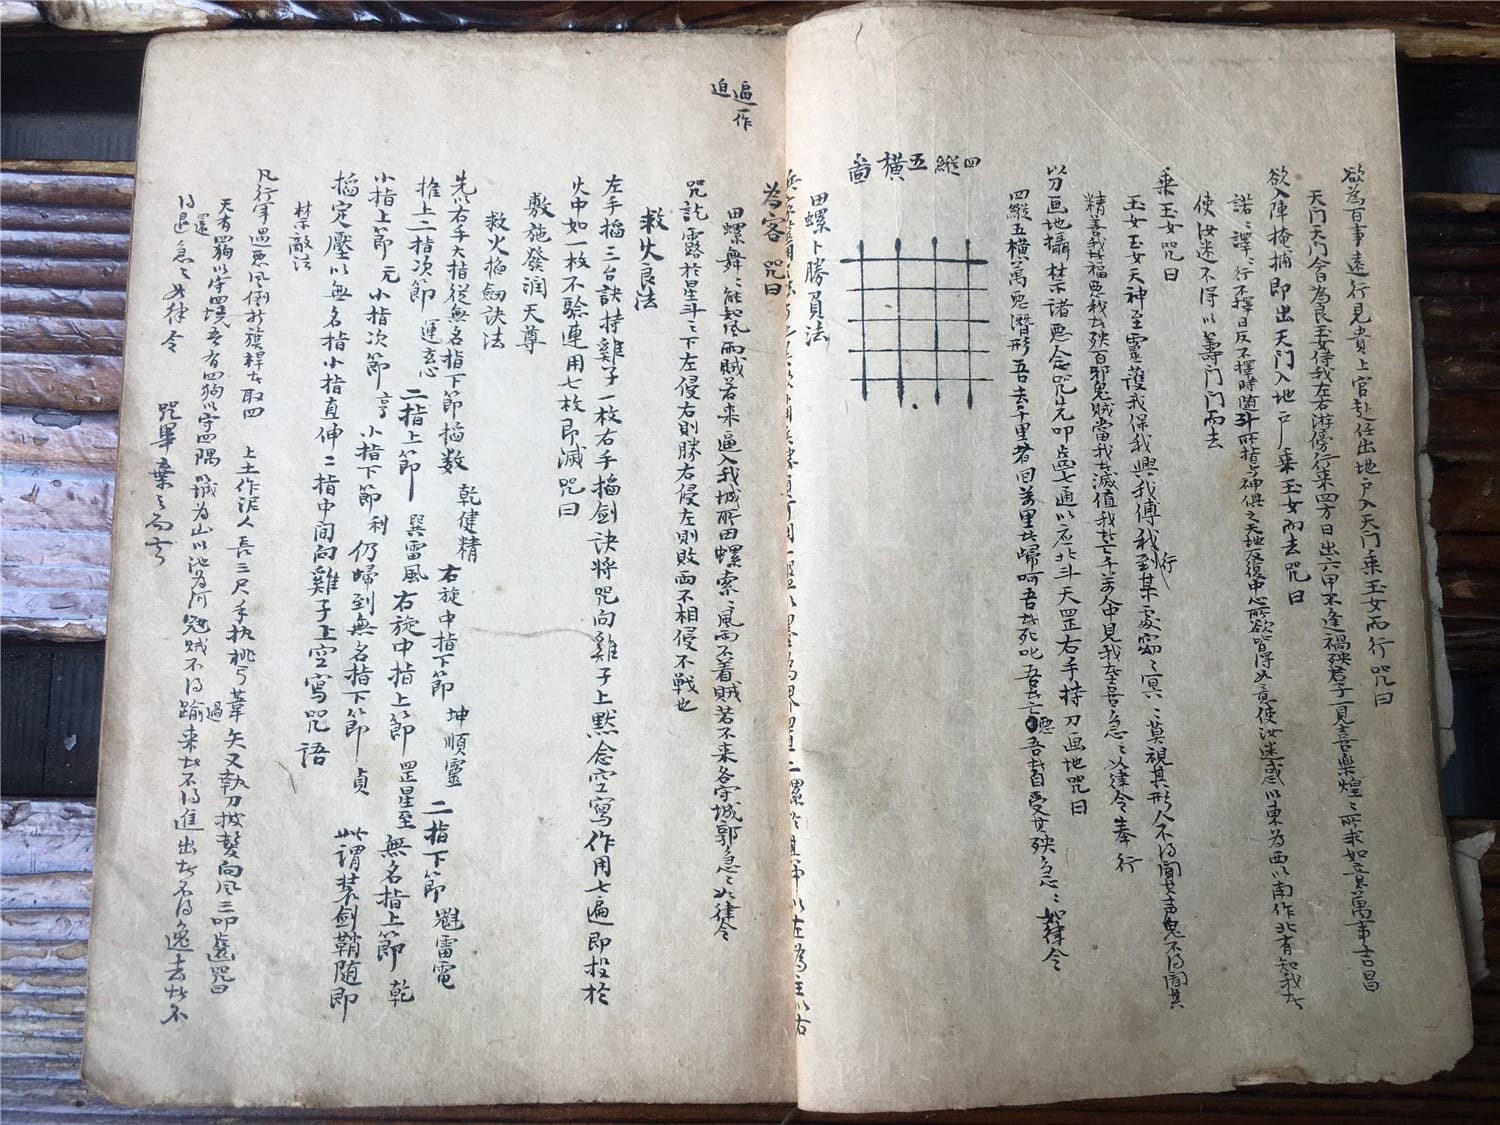 欲為百事遠行見貴上官赴任出地戶入天門乘玉女而行 咒曰
天門天門今為良玉女侍我左右游傍行來四方日出六甲不逢禍殃君子一見喜樂煌〻所求如意萬事吉昌
欲入陣掩捕即出天門入地戶 乘玉女而去咒曰
諾〻譯〻行不擇日反不擇時隨斗所指與神俱之天地反復中心所欲皆得如意使汝迷惑以東為西以南作北有知我者
使汝迷不得以籌門門而去
乘玉女咒曰
玉女玉女天神至靈護我保我與我傅我到某行處窈〻冥〻莫視其形人不得聞其声鬼不得聞其
精善我者福惡我者殃百邪鬼賊當我者滅值我者亡千萬人中見我者喜急〻如律令奉行
以刀画地攝禁諸惡念咒先叩齒七通以应北斗天罡右手持刀画地咒曰
四縱五横萬惡潛形吾去千里者回萬里者歸呵吾者死叱吾者亡 吾者自受其殃急〻如律令
四縱五橫啚
田螺卜勝負法
為客 咒曰
田螺舞〻能知風雨賊若來逼入我城所田螺索〻風雨不着賊若不來各守城郭急〻如律令
遍一作迫
咒訖露於星斗〻下左侵右則勝右侵左則敗而不相侵不戰也
救火良法
左手搯三台訣持雞子一枚右手搯劍訣將咒向雞子上默念空寫作用七遍即投於
火中如一枚不驗連用七枚即滅咒曰
敷施發润天尊
救火搯劍訣法
先以右手大指從無名指下節搯数 乾健精 右旋中指下節 坤順靈 二指下節 魁雷電
推上二指次節 運玄心 二指上節 巽雷風 右旋中指上節 罡星至 無名指上節 乾
小指上節 元 小指次節 亨 小指下節 利 仍歸到無名指下節 貞 此謂裝劍鞘随即
搯定壓以無名指小指直伸二指中間向雞子上空寫咒語
禁敵法
凡行軍遇惡風倒折旗桿者取四 上土作泥人長三尺手执桃弓葦矢又執刀披髮向風三叩齒咒曰
天有 以守四境吾有四狗以守四隅以城為山以池為河冠賊不得踰過來者不得進出者不得逸去者不
得退還急〻如律令 咒畢棄之而去